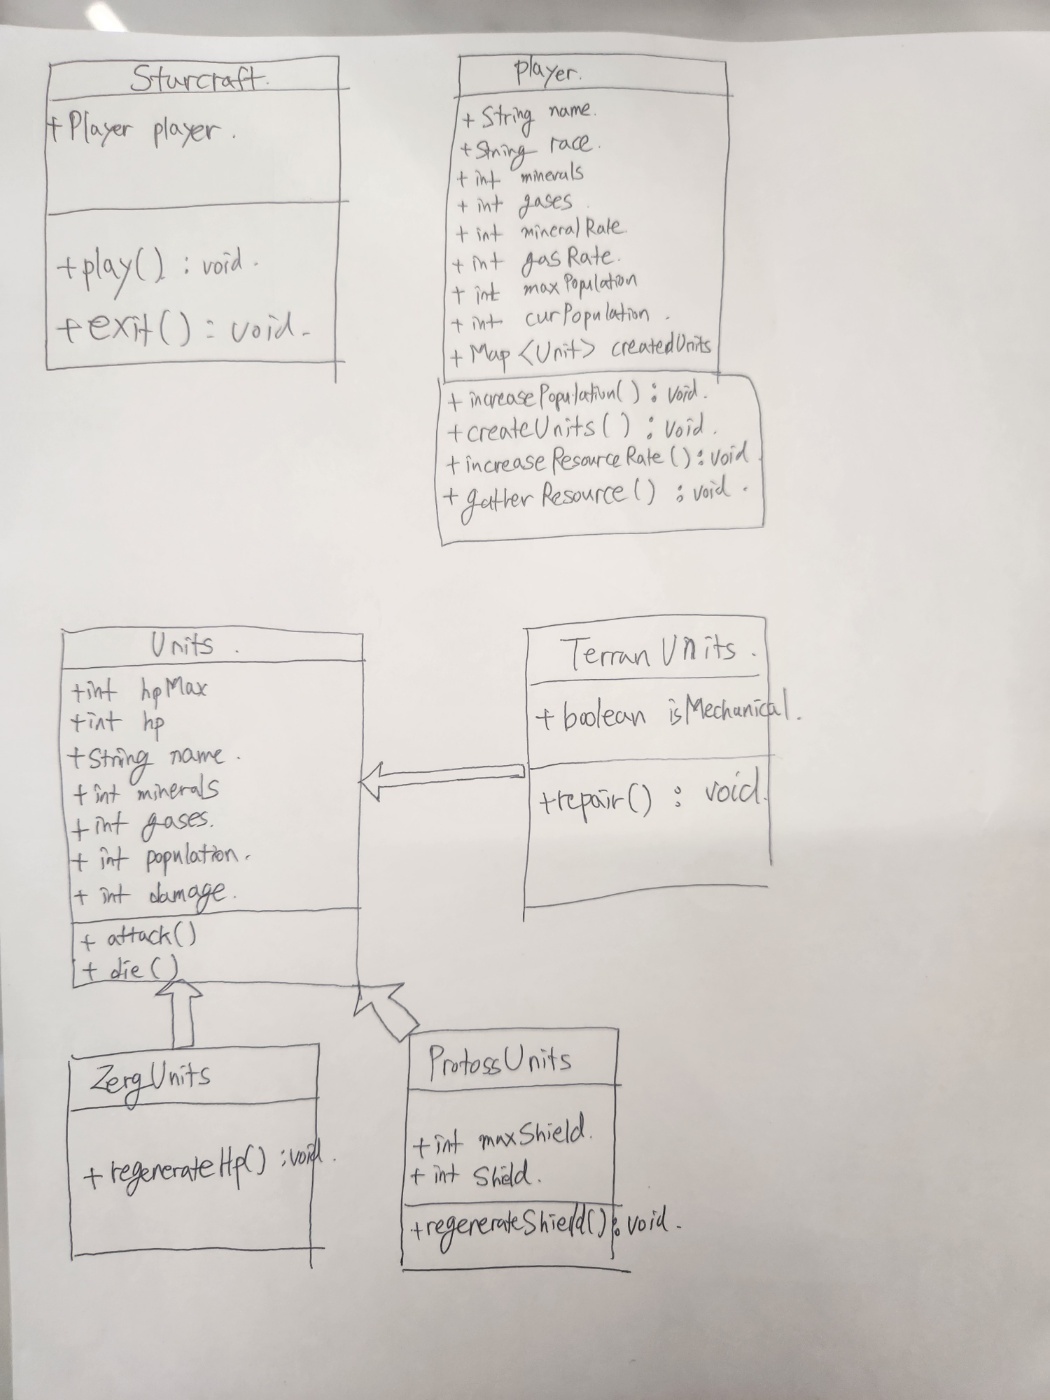 Sturcraft.
+Player player.
+play() : void.
+exit() : void.
player.
+ String name.
+String race.
+ int minerals
+ int gases.
+ int mineralRate
+ int gasRate.
+ int maxPopulation
+ int curPopulation.
+ Map <Unit> createdUnits
+ increasePopulation() : void.
+ createUnits() : void.
+ increaseResourceRate() : void
+ gatherResource() : void.
Units.
+int hpMax
+int hp
+String name.
+ int minerals
+ int gases.
+ int population.
+ int damage.
+ attack()
+ die()
Terran Units.
+ boolean isMechanical.
+repair() : void.
ZergUnits
+ regenerateHp() : void.
ProtossUnits
+ int maxShield.
+ int Shield.
+regenerateShield() : void.